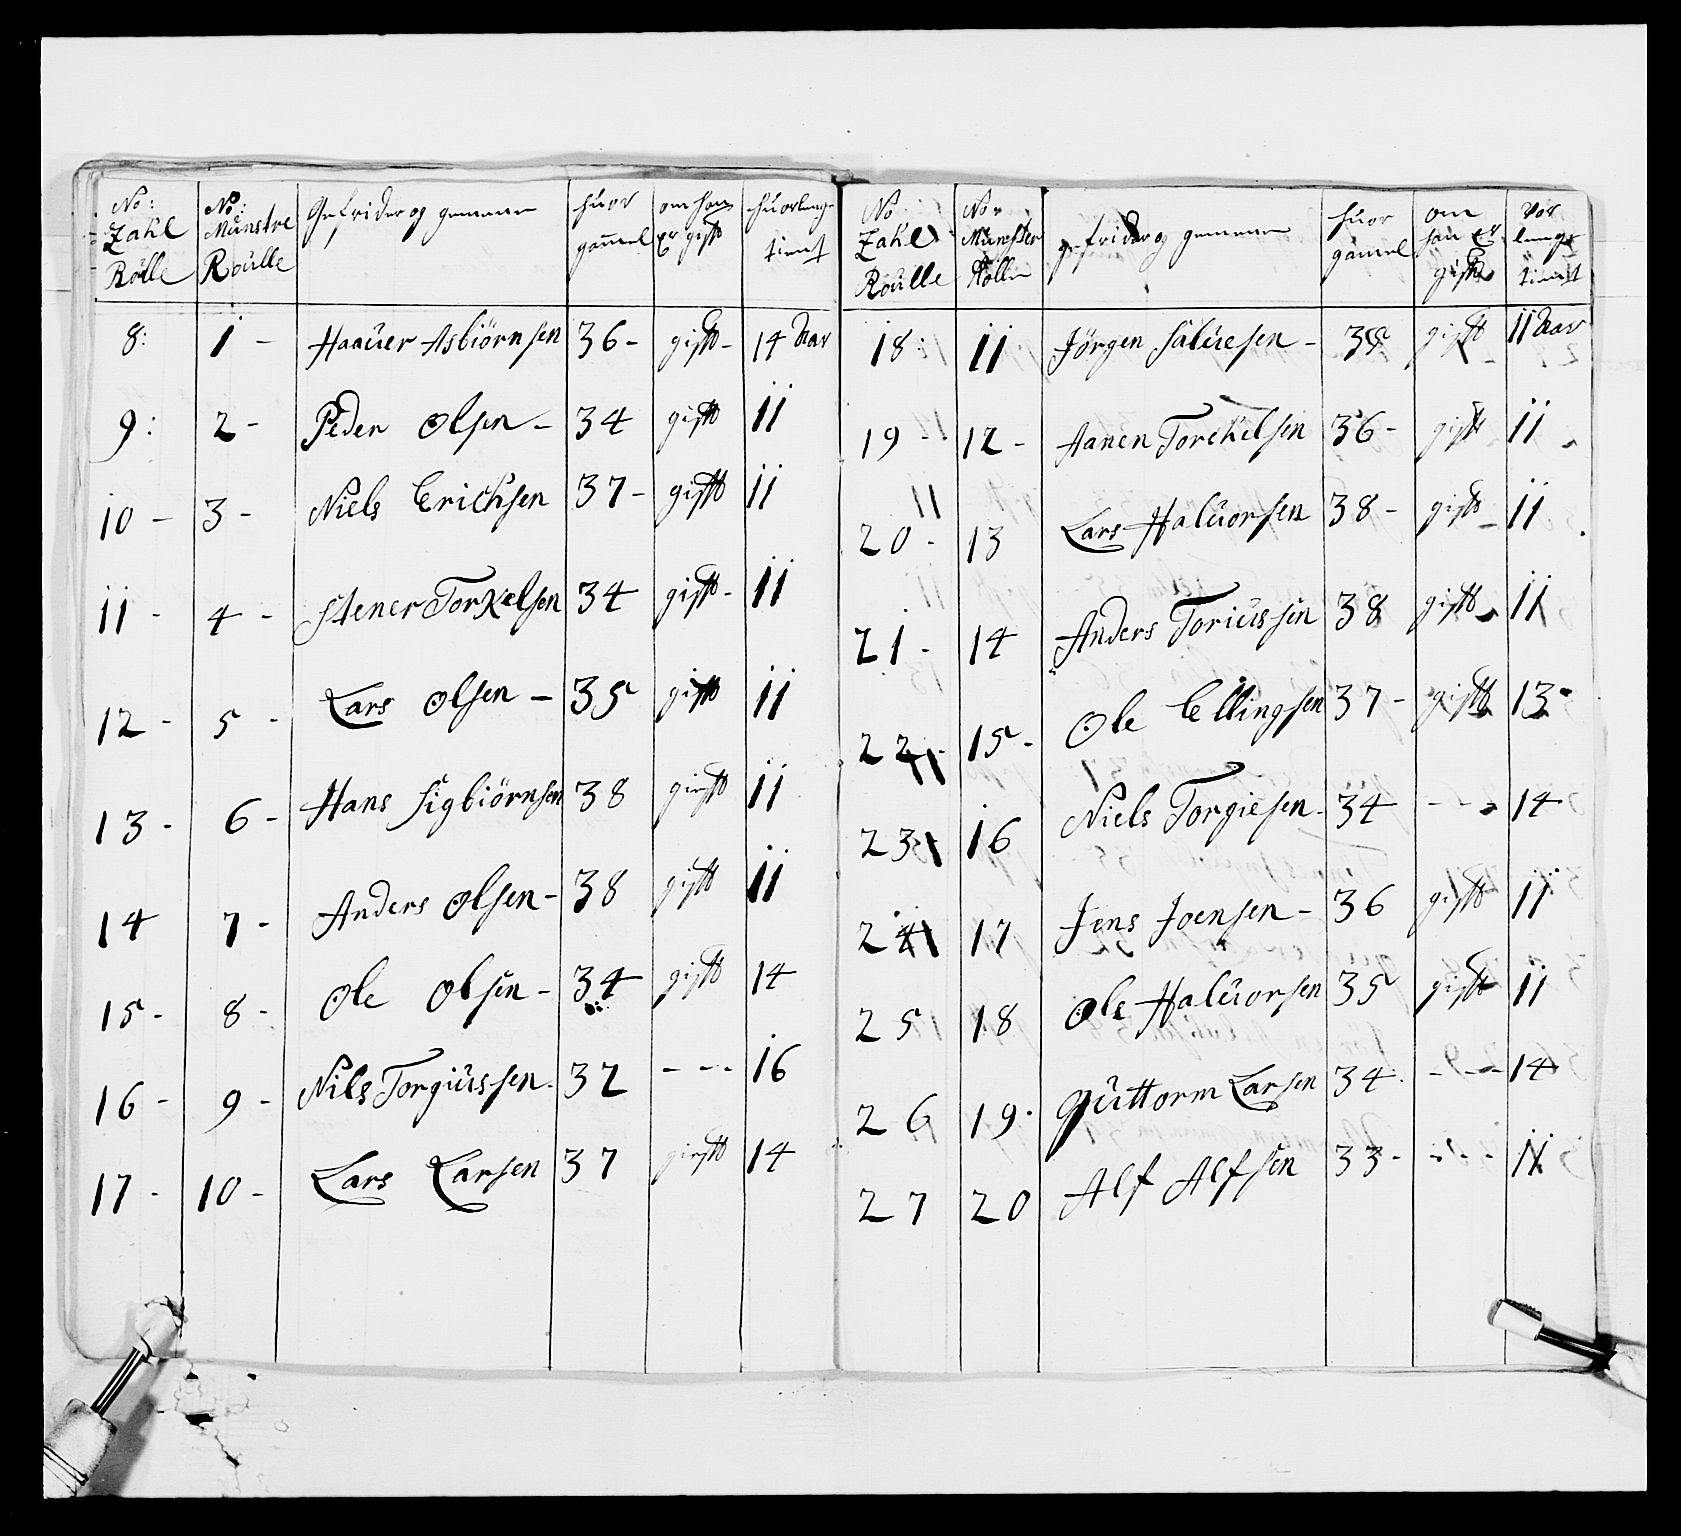 No: Zahl Rölle | No: Münstre Roülle | Gefrider og gemeene | huor gammel | om han er gift | huorlenge tient
8: | 1 - | Haaüer Asbiörnsen | 36 - | gift - | 14 Aar
9: | 2 - | Peder Olsen - | 34 | gift | 11
10 - | 3 - | Niels Erichsen | 37 - | gift | 11
11 - | 4 - | Stener Torkelsen | 34 | gift - | 11
12 - | 5 - | Lars Olsen - | 35 | gift | 11
13 - | 6 - | Hans Sigbiörnsen | 38 | gift | 11
14 | 7 - | Anders Olsen - | 38 | gift | 11
15 - | 8 - | Ole Olsen - | 34 | gift | 14
16 - | 9 - | Nils Torgiüssen - | 32 | - - - | 16
17 - | 10 - | Lars Larsen | 37 | gift | 14
No Zahl Roülle | No Münster Rolle | gefrider og gemeene | huor gammel | om han er gift | lenge tient
18: | 11 | Jörgen Salüesen - | 35 | gift | 11 Aar
19 - | 12 - | Aanen Torckelsen | 36 - | gift | 11
20 - | 13 | Lars Halüorsen | 38 - | gift | 11
21 - | 14 | Anders Toriüssen | 38 | gift | 11
22 - | 15 - | Ole Ellingsen | 37 - | gift | 13
23 | 16 | Niels Torgiesen - | 34 | - - - | 14
24 | 17 | Jens Joensen - | 36 | gift | 11
25 | 18 | Ole Halüorsen | 35 | gift | 11
26 | 19 | Güttorm Larsen | 34 | - - - | 14
27 | 20 | Alf Alfsen | 33 - | - - - | 11